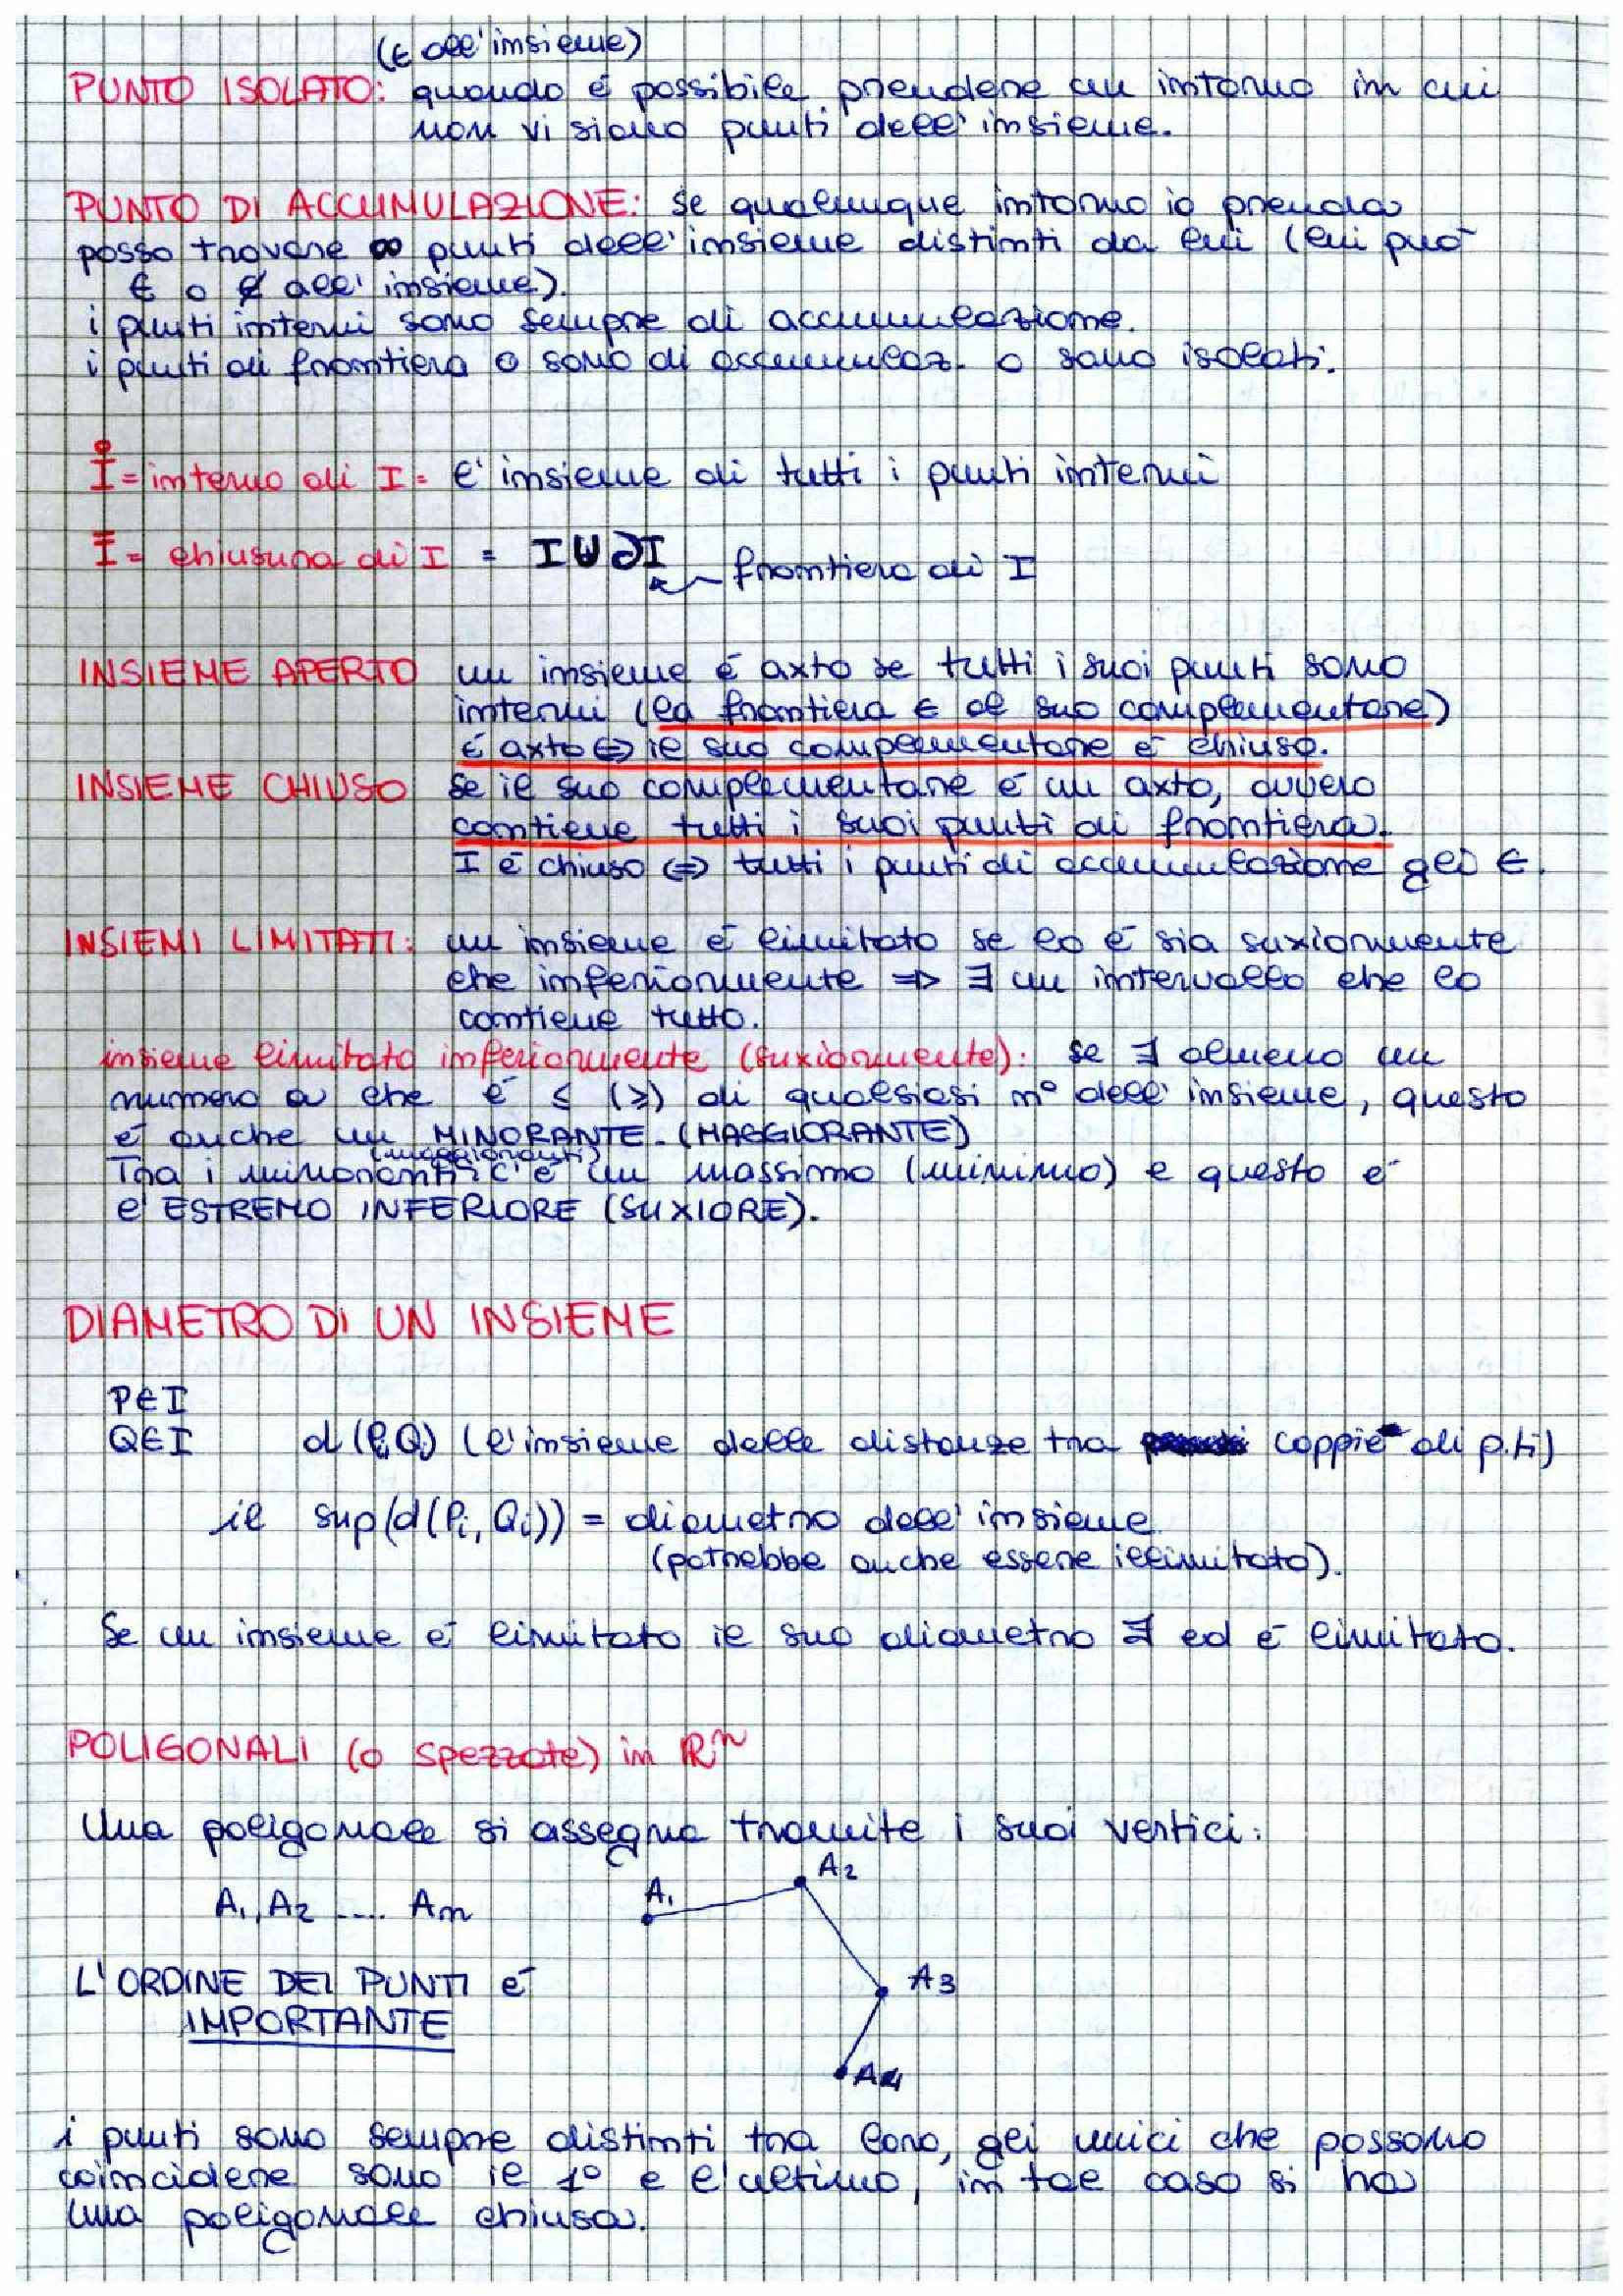 (∈ all'insieme)
PUNTO ISOLATO: quando é possibile prendere un intorno in cui
non vi siano punti dell'insieme.
PUNTO DI ACCUMULAZIONE: se qualunque intorno io prenda
posso trovare ∞ punti dell'insieme distinti da lui (lui può
∈ o ∉ all'insieme).
i punti interni sono sempre di accumulazione.
i punti di frontiera o sono di accumulaz. o sono isolati.
I̊ = interno di I = l'insieme di tutti i punti interni
Ī = chiusura di I = I ∪ ∂I
frontiera di I
INSIEME APERTO un insieme é axto se tutti i suoi punti sono
interni (la frontiera ∈ al suo complementare)
é axto ⇔ il suo complementare é chiuso.
INSIEME CHIUSO se il suo complementare é un axto, ovvero
contiene tutti i suoi punti di frontiera.
I é chiuso ⇔ tutti i punti di accumulazione gli ∈.
INSIEMI LIMITATI: un insieme é limitato se lo é sia suxiormente
che inferiormente ⇒ ∃ un intervallo che lo
contiene tutto.
insieme limitato inferiormente (suxiormente): se ∃ almeno un
numero a che é ≤ (≥) di qualsiasi nº dell'insieme, questo
é anche un MINORANTE. (MAGGIORANTE)
(maggioranti)
Tra i minoranti c'é un massimo (minimo) e questo é
l'ESTREMO INFERIORE (SUXIORE).
DIAMETRO DI UN INSIEME
P∈I
Q∈I d(P,Q) (l'insieme delle distanze tra coppie di p.ti)
il sup(d(Pi, Qi)) = diametro dell'insieme
(potrebbe anche essere illimitato).
Se un insieme é limitato il suo diametro ∃ ed é limitato.
POLIGONALI (o spezzate) in ℝⁿ
Una poligonale si assegna tramite i suoi vertici:
A1, A2 .... An
A1
A2
A3
A4
L'ORDINE DEI PUNTI é
IMPORTANTE
i punti sono sempre distinti tra loro, gli unici che possono
coincidere sono il 1º e l'ultimo, in tal caso si ha
una poligonale chiusa.